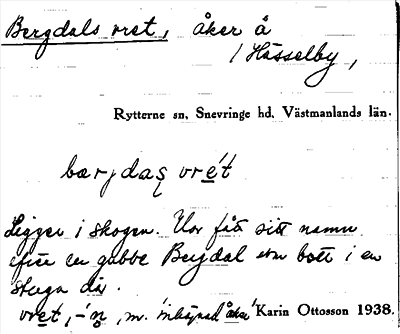 Bergdals vret, åker å
/ Hässelby,
Rytterne sn, Snevringe hd, Västmanlands län.
bærjdaş vre̱t
Ligger i skogen. Har fått sitt namn
efter en gubbe Bergdal som bott i en
stuga där.
vret, -'n̥, m. 'inhägnad åker' Karin Ottosson 1938.